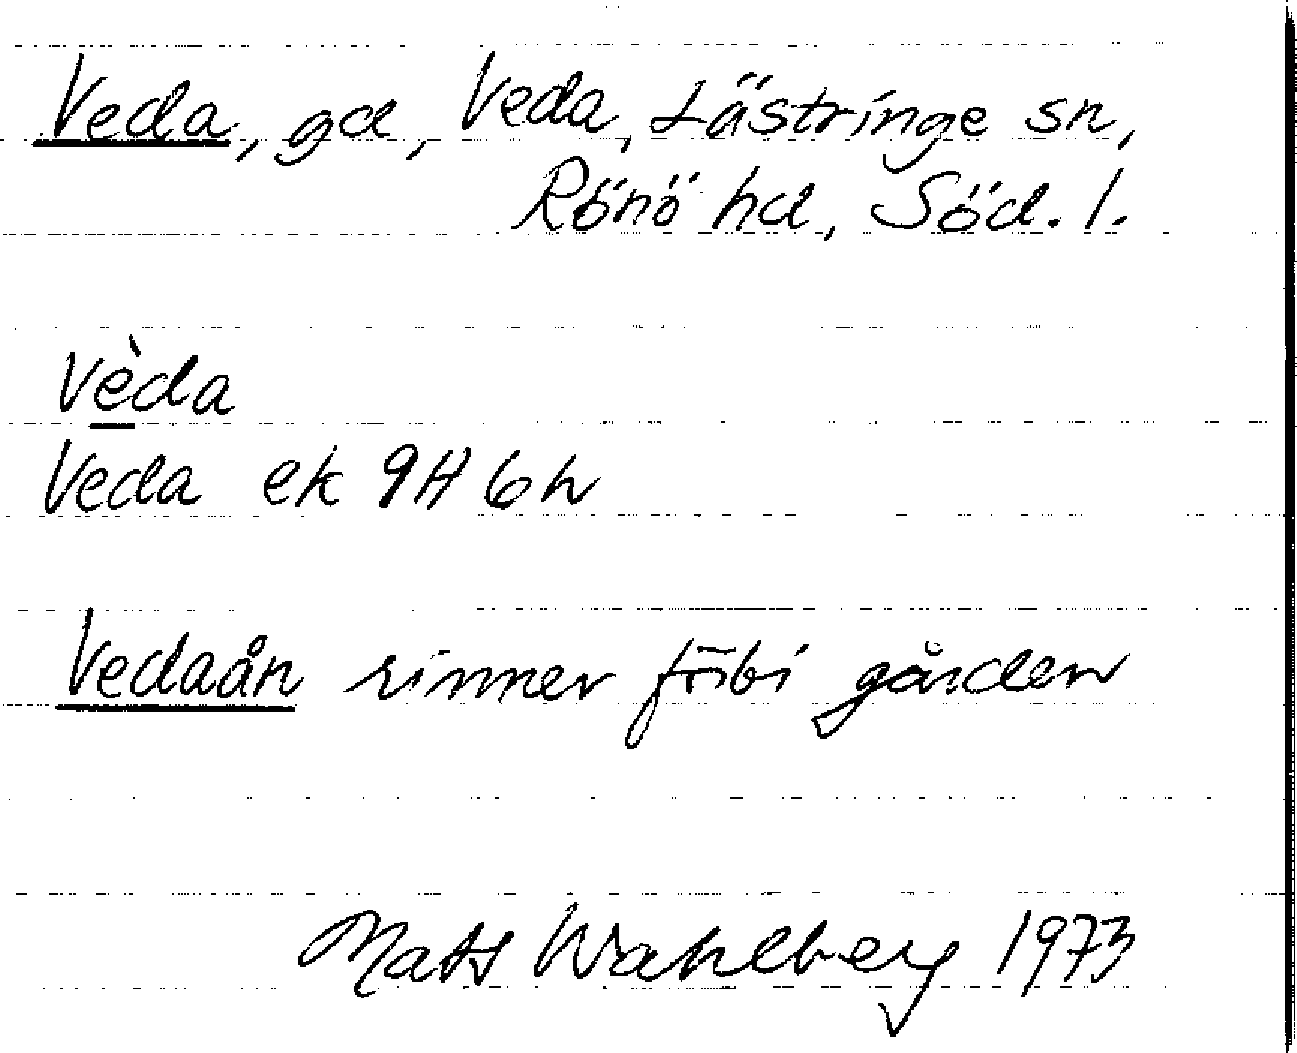 Veda, gd, Veda, Lästringe sn,
Rönö hd, Söd. l.
Vèda
Veda ek 9H 6h
Vedaån rinner förbi gården
Mats Wahlberg 1973